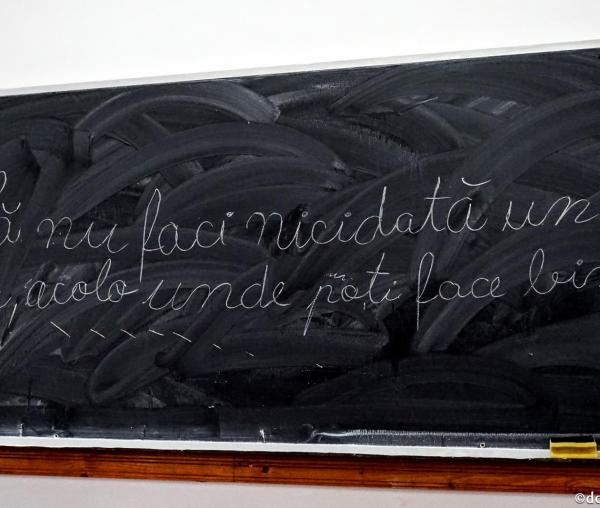 ă nu faci nicidată un
, acolo unde poti face bin
©do